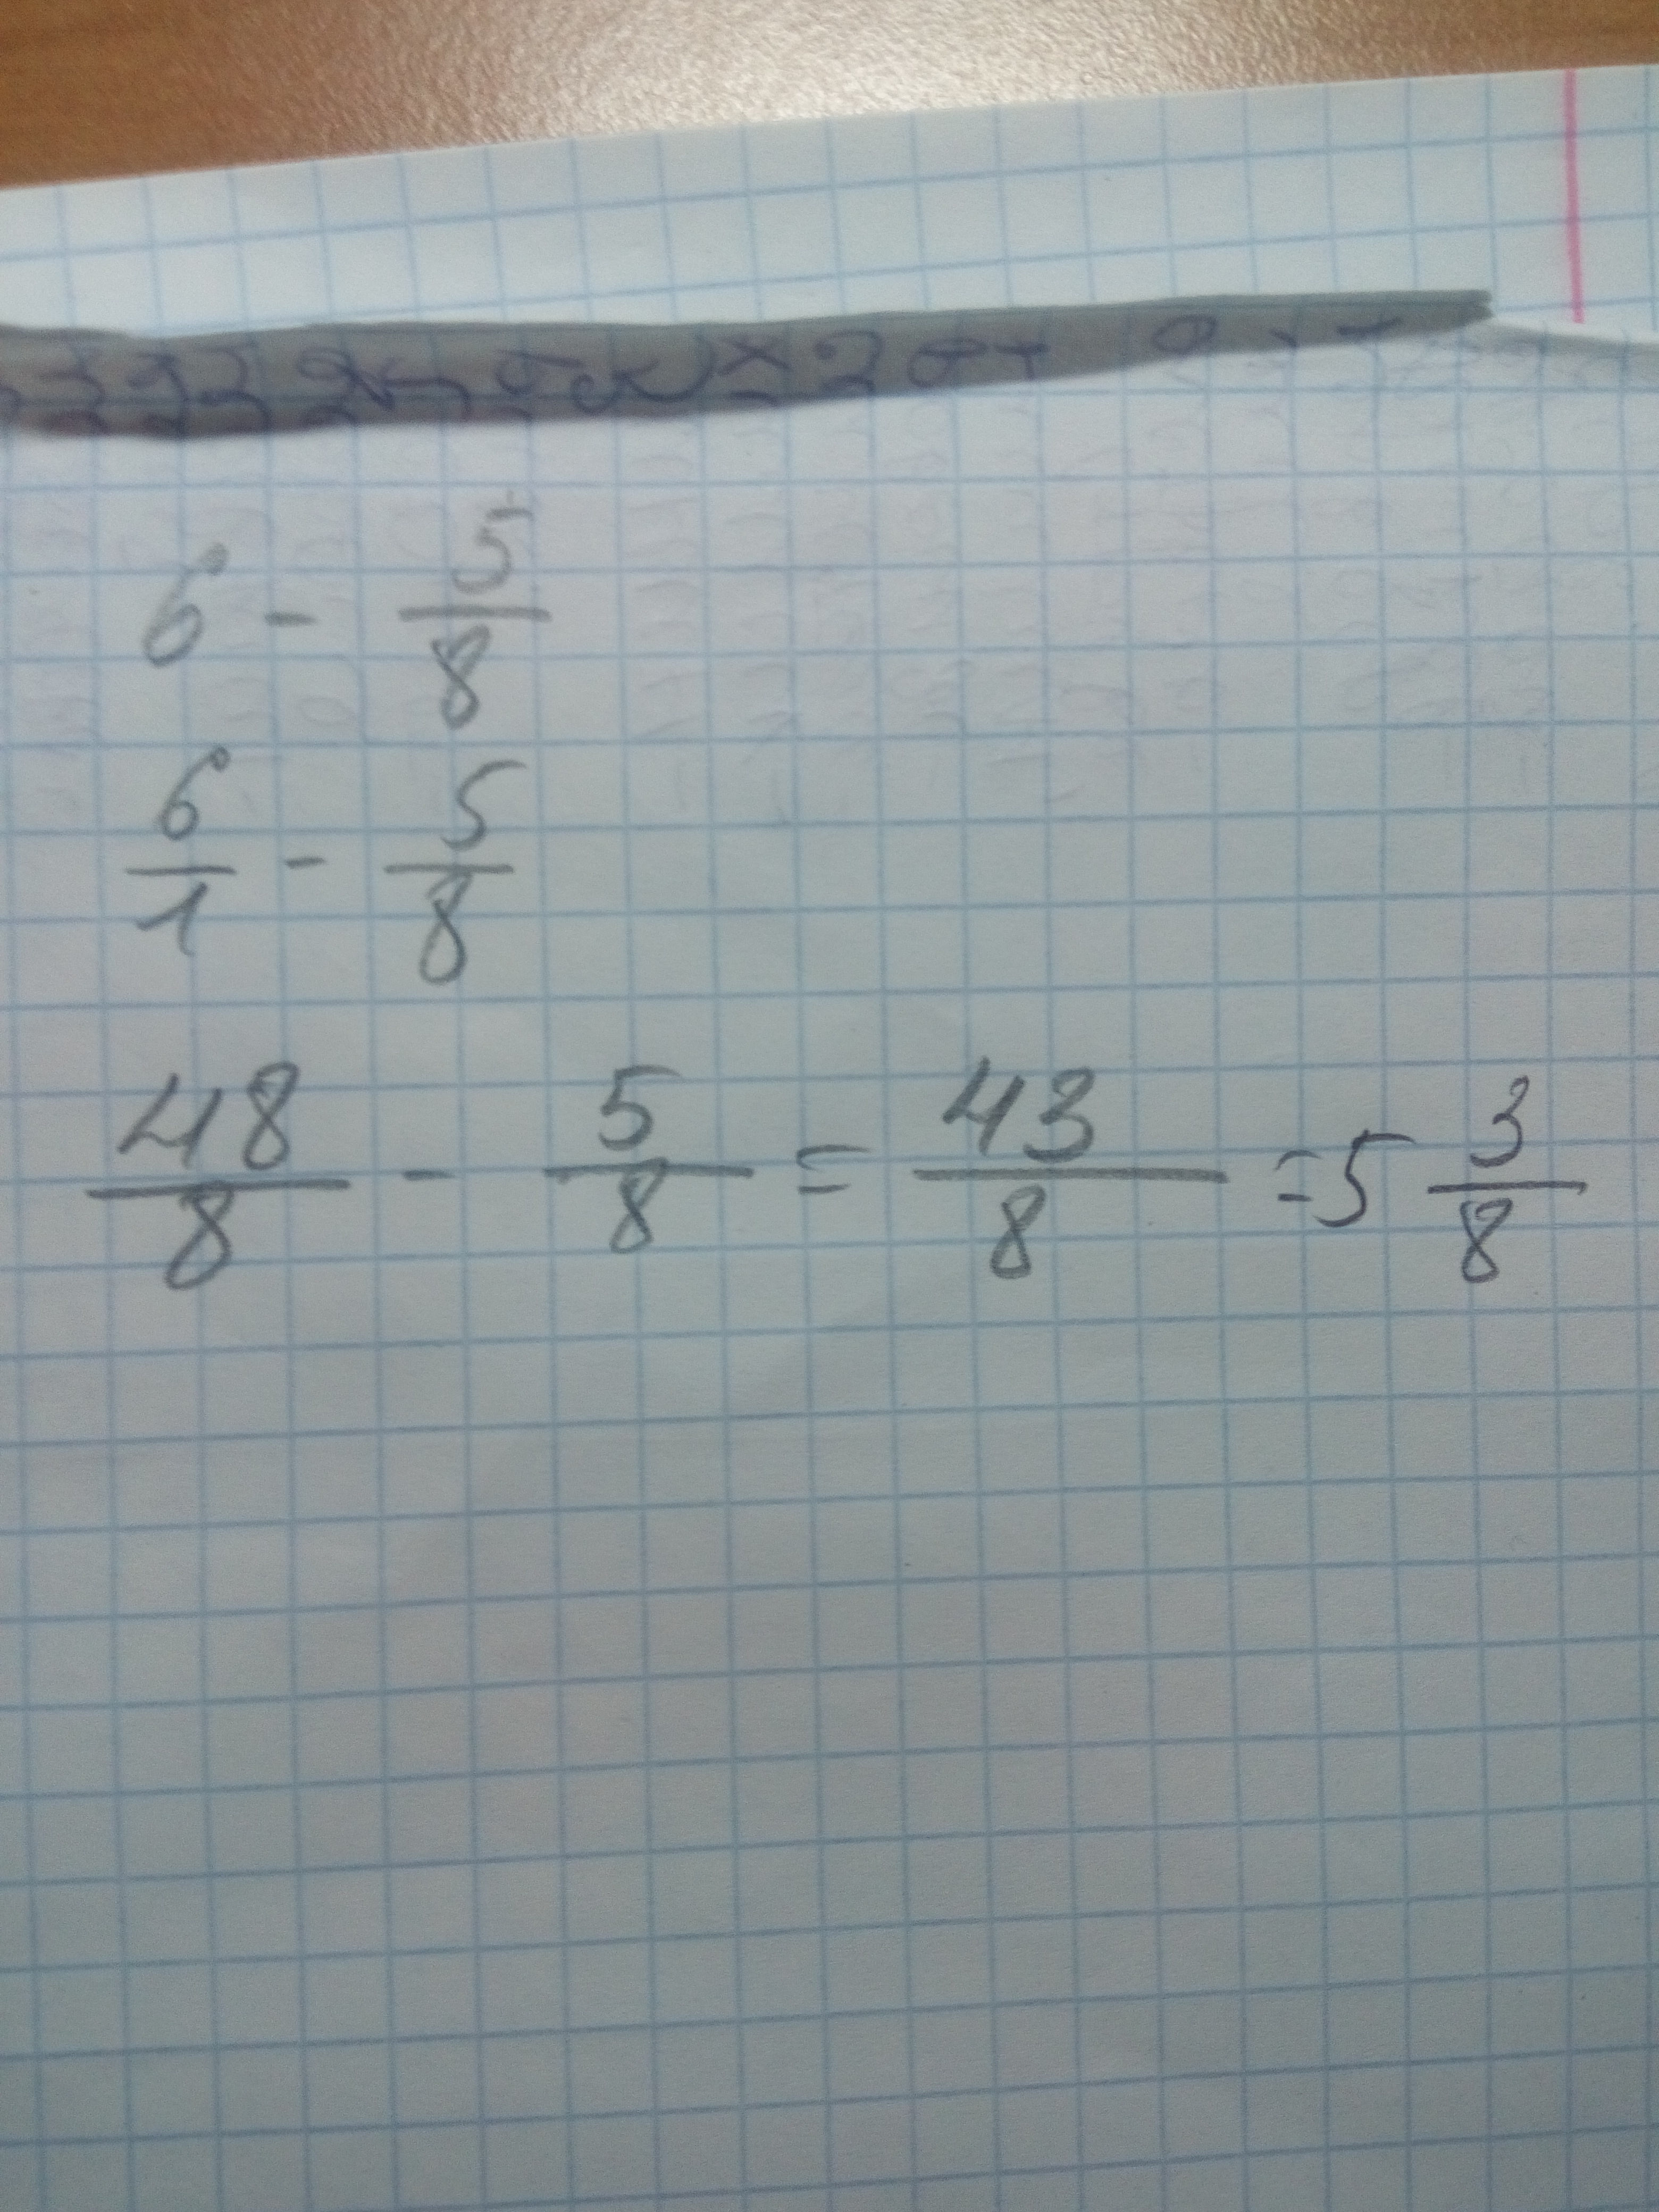 6 - 5/8
6/1 - 5/8
48/8 - 5/8 = 43/8 = 5 3/8